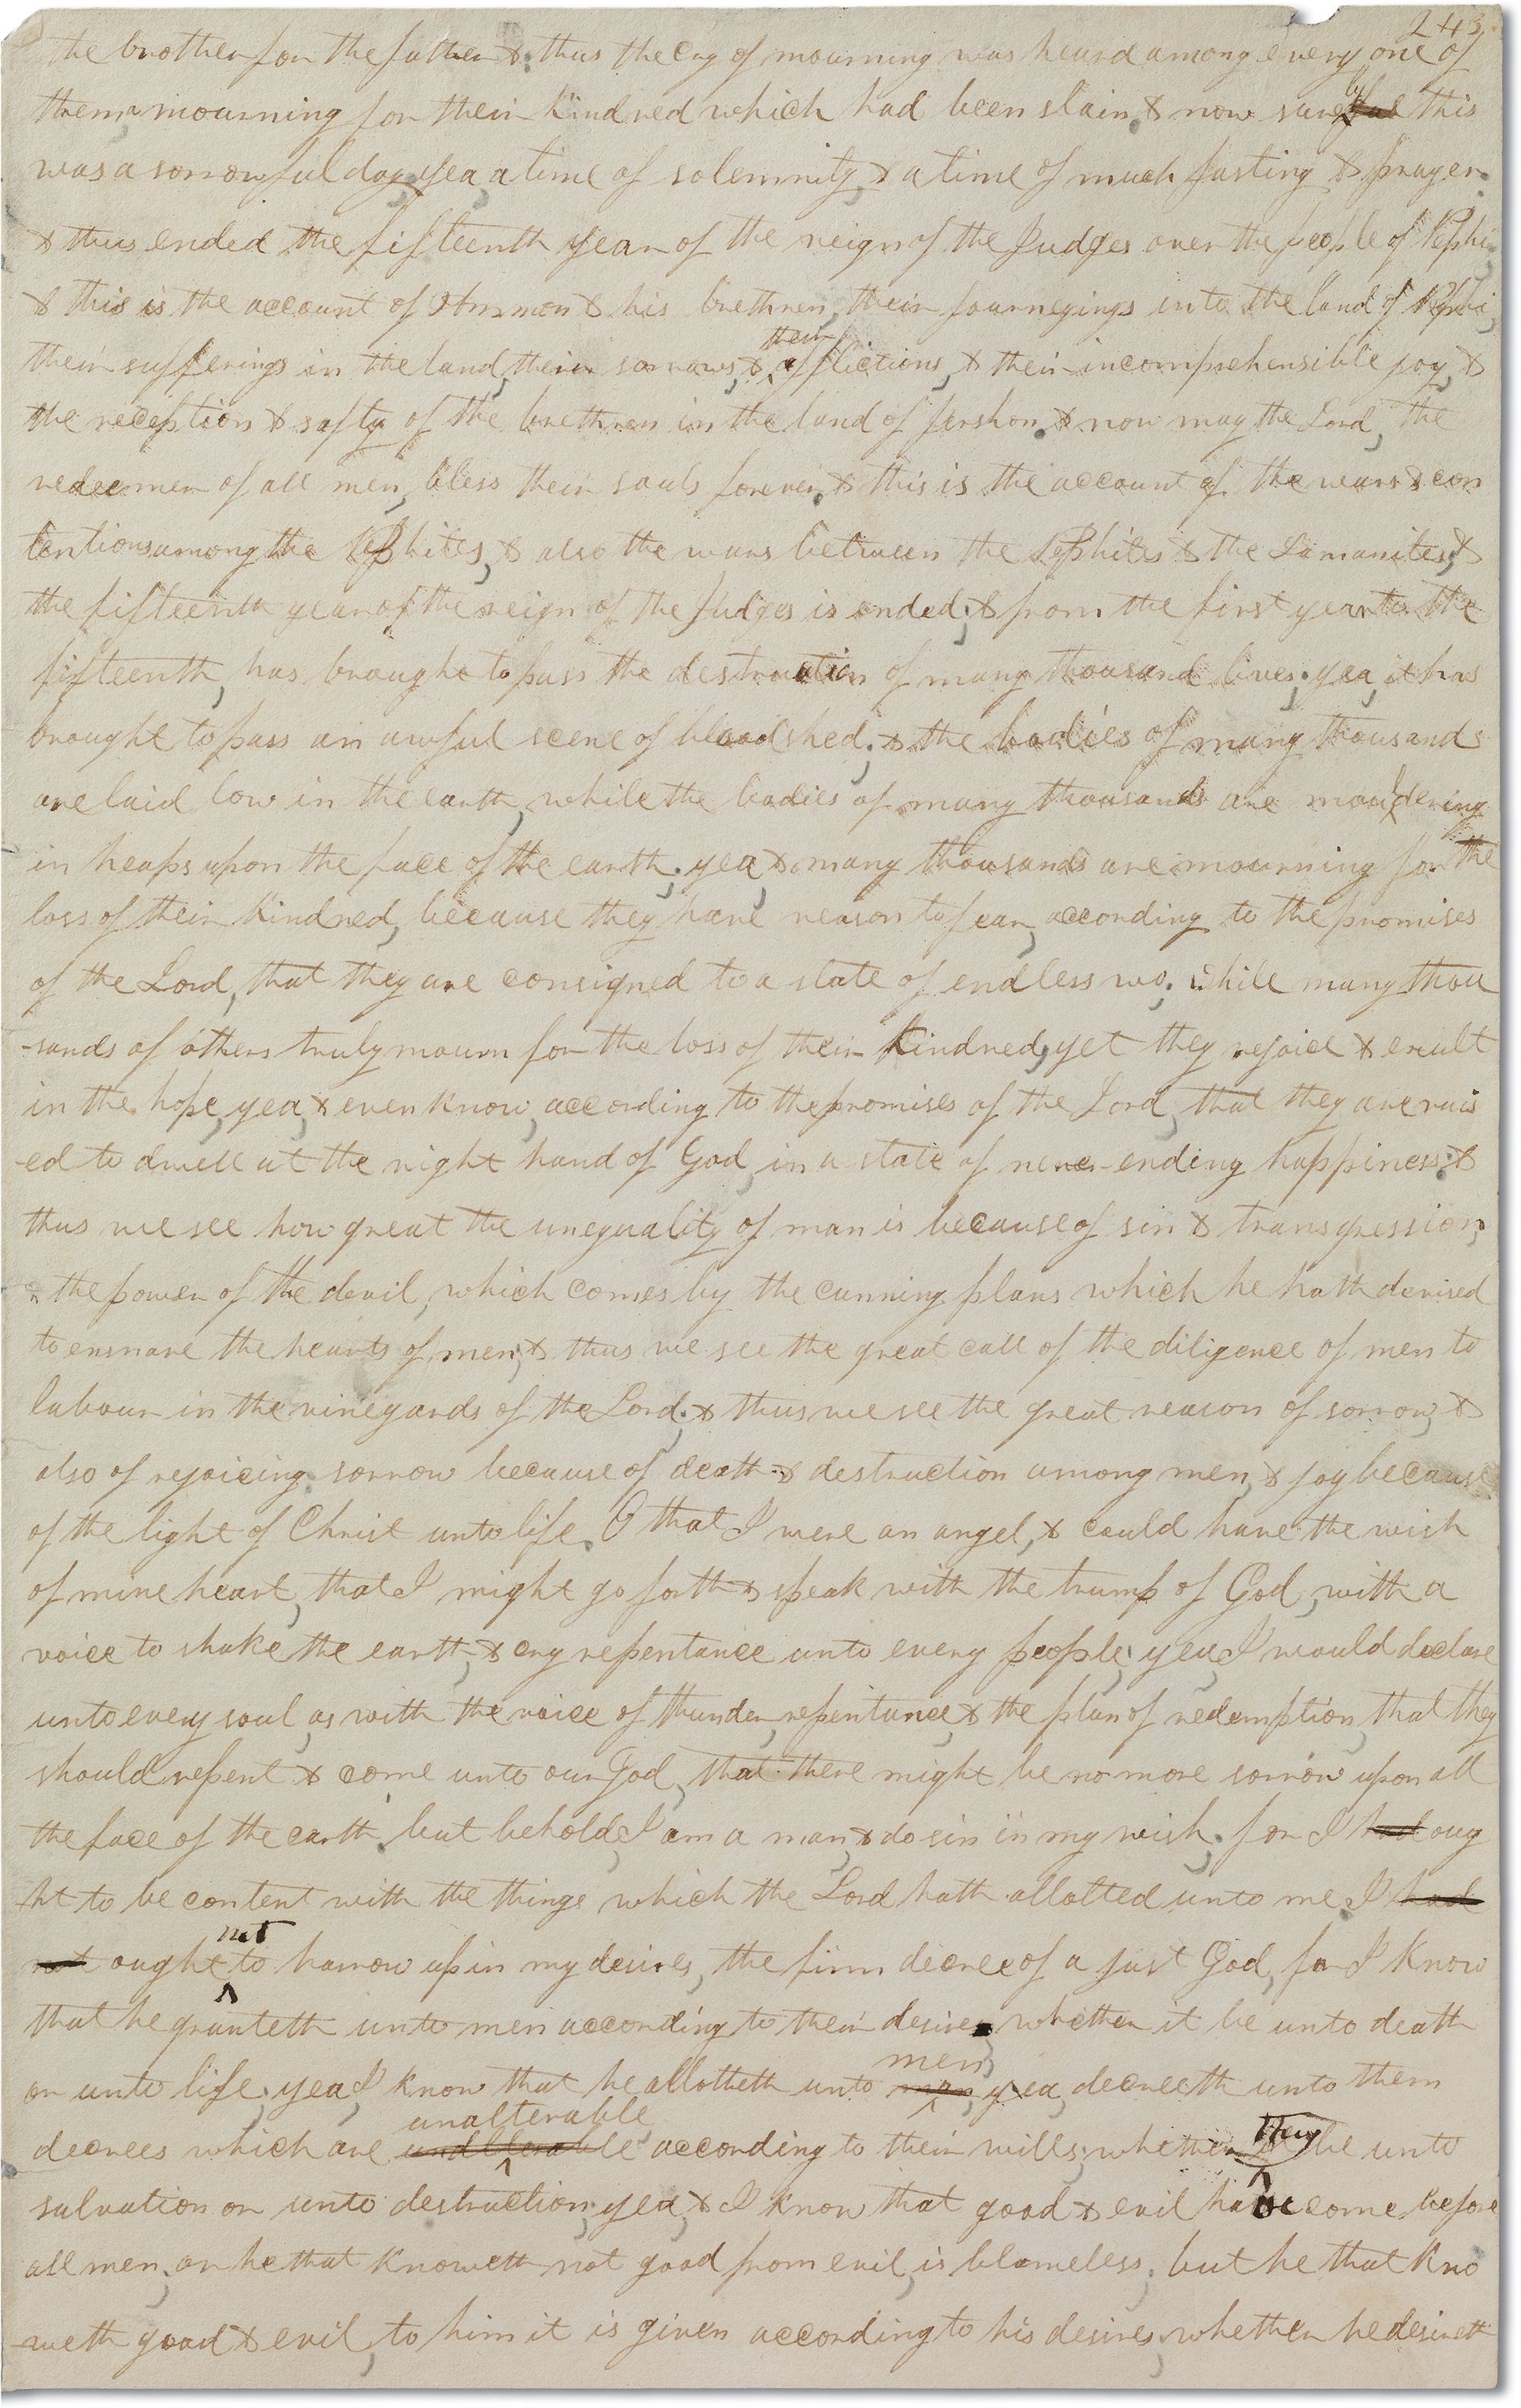 243
the brother for the father & thus the cry of mourning was heard among every one of
them, mourning for their kindred which had been slain. & now surely this
was a sorrowful day, yea, a time of solemnity, & a time of much fasting & prayer.
& thus ended the fifteenth year of the reign of the Judges over the people of Nephi,
& this is the account of Ammon & his brethren, their journeyings into the land of Nephi,
their sufferings in the land, their sorrows, & their afflictions, & their incomprehensible joy, &
the reception & safty of the brethren in the land of Jershon. & now may the Lord, the
redeemer of all men, bless their souls forever. & this is the account of the wars & con
tentions among the Nephites, & also the wars between the Nephites & the Lamanites; &
the fifteenth year of the reign of the Judges is ended; & from the first year to the
fifteenth, has brought to pass the destruction of many thousand lives; yea, it has
brought to pass an awful scene of bloodshed; & the bodies of many thousands
are laid low in the earth, while the bodies of many thousands are mouldering
in heaps upon the face of the earth; yea, & many thousands are mourning for the
loss of their kindred, because they have reason to fear, according to the promises
of the Lord, that they are consigned to a state of endless wo; while many thou
-sands of others truly mourn for the loss of their kindred, yet they rejoice & exult
in the hope, yea, & even know, according to the promises of the Lord, that they are rais
-ed to dwell at the right hand of God, in a state of never-ending happiness; &
thus we see how great the unequality of man is because of sin & transgression,
& the power of the devil, which comes by the cunning plans which he hath devised
to ensnare the hearts of men; & thus we see the great call of the diligence of men to
labour in the vineyards of the Lord; & thus we see the great reason of sorrow, &
also of rejoicing: sorrow because of death & destruction among men, & joy because
of the light of Christ unto life. O that I were an angel, & could have the wish
of mine heart, that I might go forth & speak with the trump of God, with a
voice to shake the earth, & cry repentance unto every people; yea, I would declare
unto every soul, as with the voice of thunder, repentance, & the plan of redemption, that they
should repent & come unto our God, that there might be no more sorrow upon all
the face of the earth. but behold, I am a man, & do sin in my wish; for I had oug
ht to be content with the things which the Lord hath allotted unto me. I had
not ought not to harrow up in my desires, the firm decree of a just God, for I know
that he granteth unto men according to their desires whether it be unto death
or unto life; yea, I know that he allotteth unto man men, yea, decreeth unto them
decrees which are unalterable according to their wills; whether they be unto
salvation or unto destruction; yea, & I know that good & evil have come before
all men, or he that knoweth not good from evil, is blameless; but he that kno
-weth good & evil, to him it is given according to his desires; whether he desireth